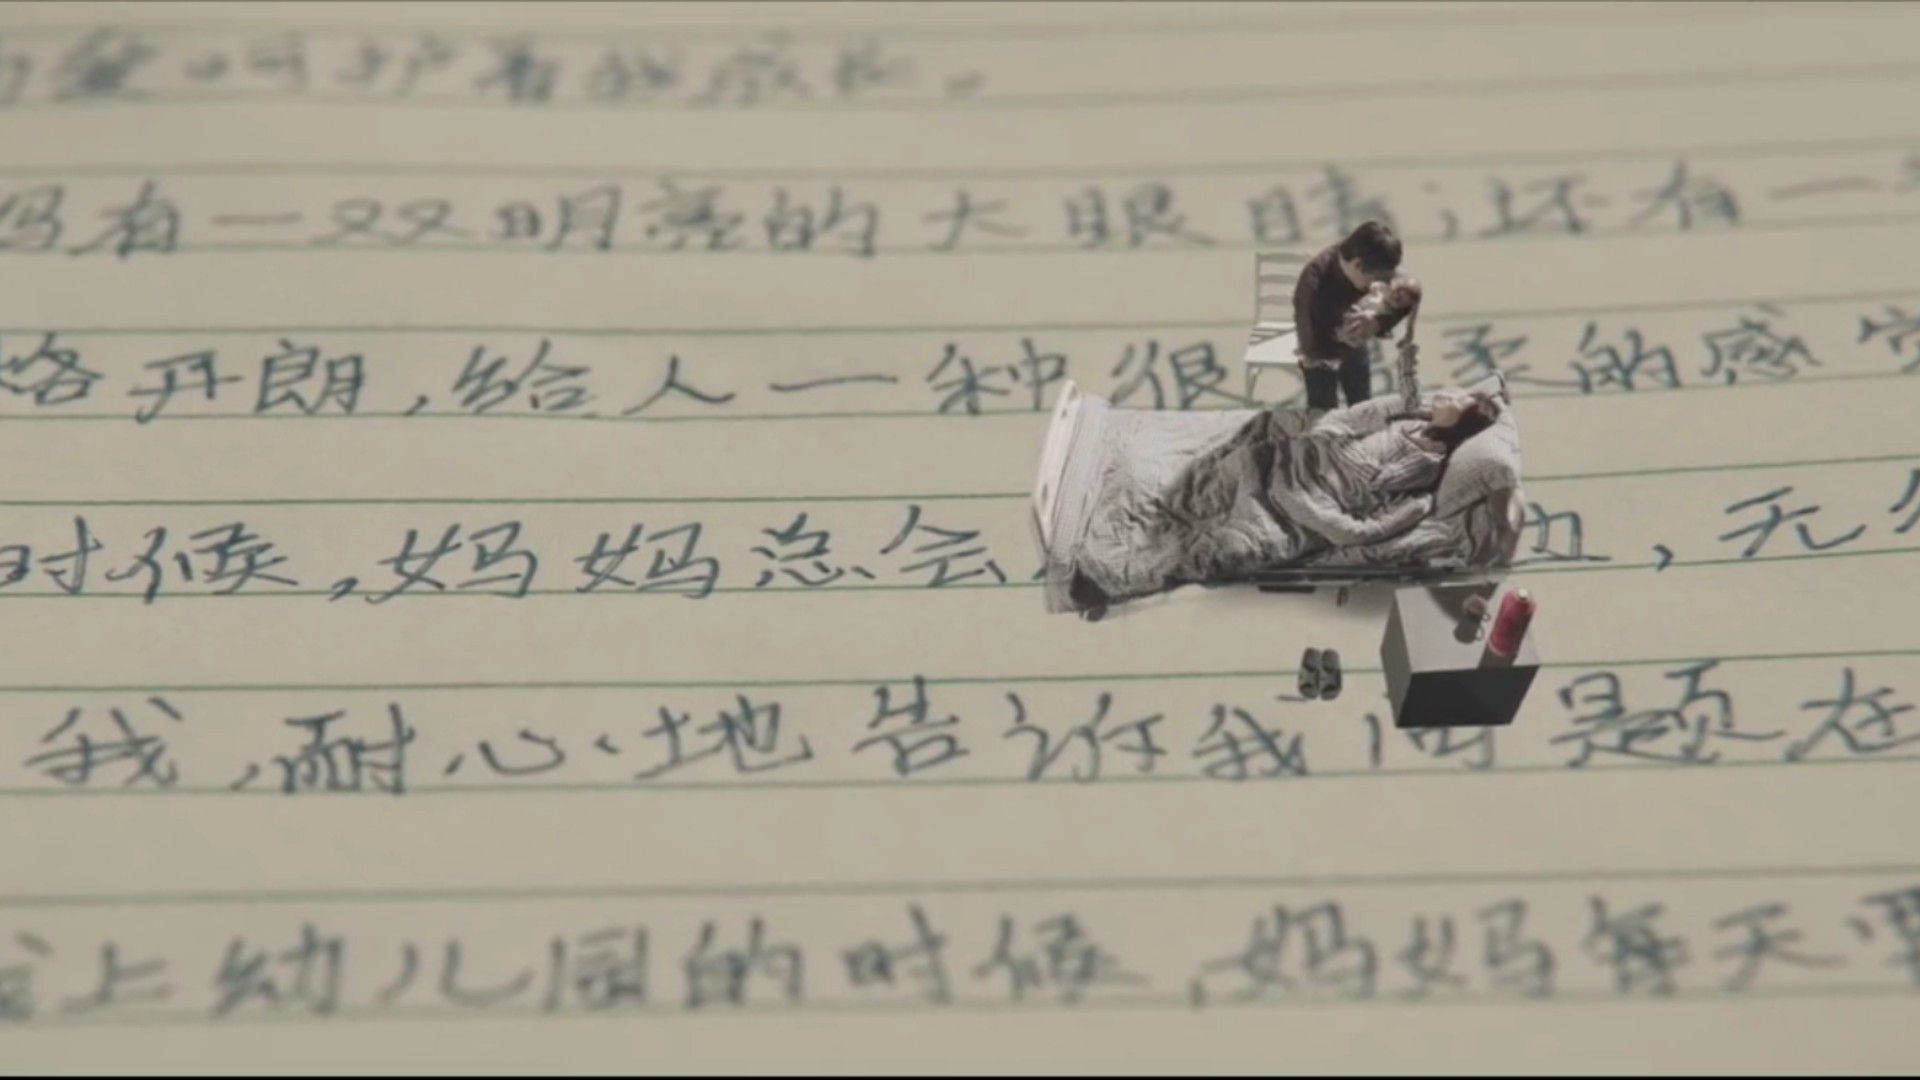 爱呵护着我成长。
妈有一双明亮的大眼睛;还有一
格开朗,给人一种很温柔的感觉
时候,妈妈总会 边,无
我,耐心地告诉我问题在
我上幼儿园的时候,妈妈每天要